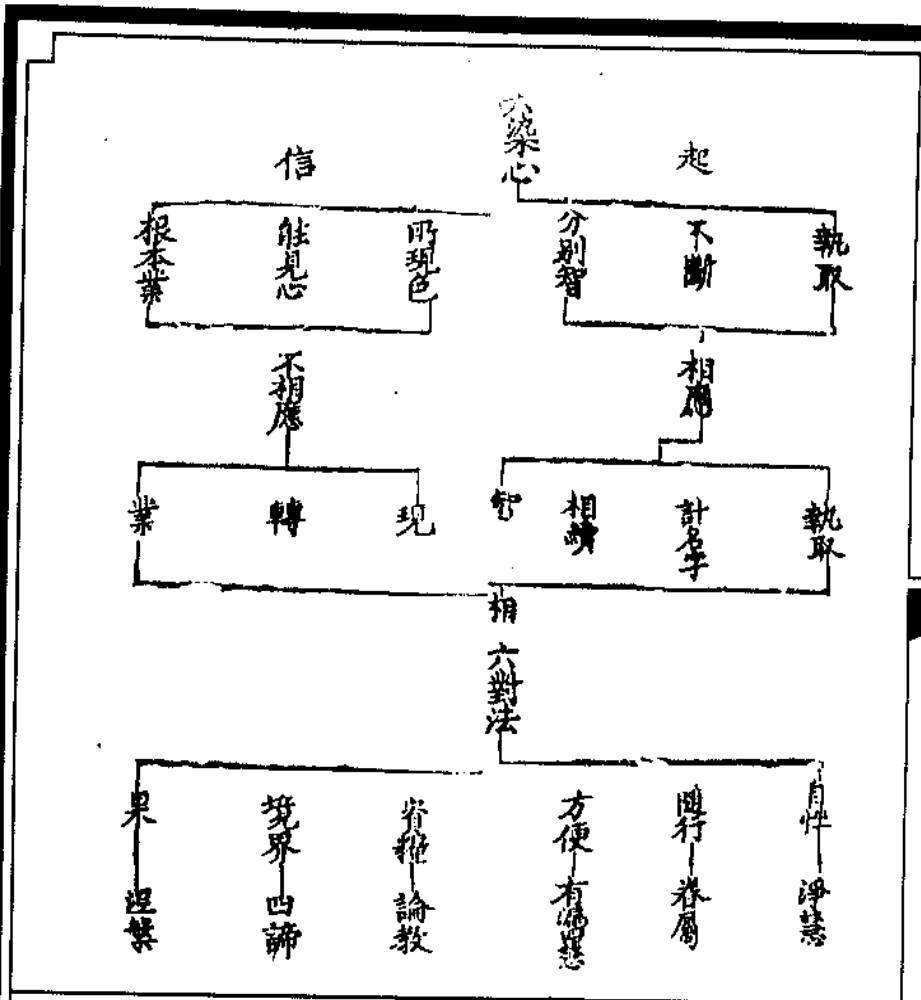 六染心
起
信
執取
不斷
分別智
所現色
能見心
根本業
相應
不相應
執取
計名字
相續
智
現
轉
業
相
六對法
自性—淨慧
隨行—眷屬
方便—有漏慧
資糧—論教
境界—四諦
果—涅槃